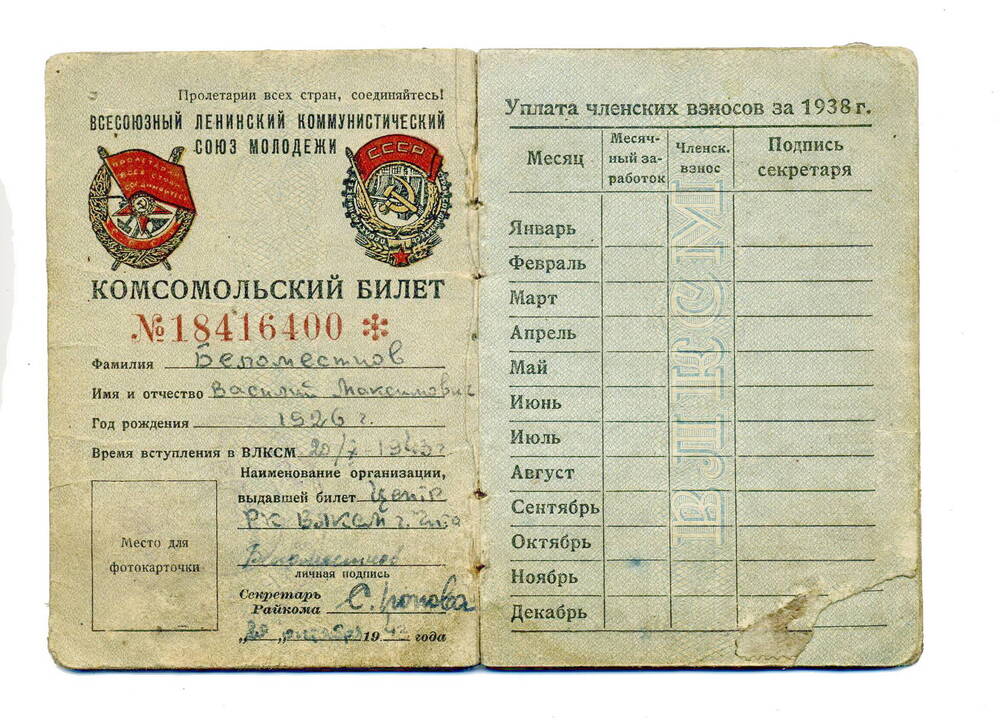 Пролетарии всех стран, соединяйтесь!
ВСЕСОЮЗНЫЙ ЛЕНИНСКИЙ КОММУНИСТИЧЕСКИЙ
СОЮЗ МОЛОДЕЖИ
ПРОЛЕТАРИИ
ВСЕХ СТРАН
СОЕДИНЯЙТЕСЬ
СССР
СССР
КОМСОМОЛЬСКИЙ БИЛЕТ
№18416400 *
Фамилия Беломестнов
Имя и отчество Василий Максимович
Год рождения 1926 г.
Время вступления в ВЛКСМ 1943 г
Наименование организации,
выдавшей билет Центр
РК ВЛКСМ г. Чита
Беломестнов
личная подпись
Место для
фотокарточки
Секретарь
Райкома
октября 19 года
Уплата членских взносов за 1938 г.
Месяц
Месяч-
ный за-
работок
Членск.
взнос
Подпись
секретаря
Январь
Февраль
Март
Апрель
Май
Июнь
Июль
Август
Сентябрь
Октябрь
Ноябрь
Декабрь
ВЛКСМ